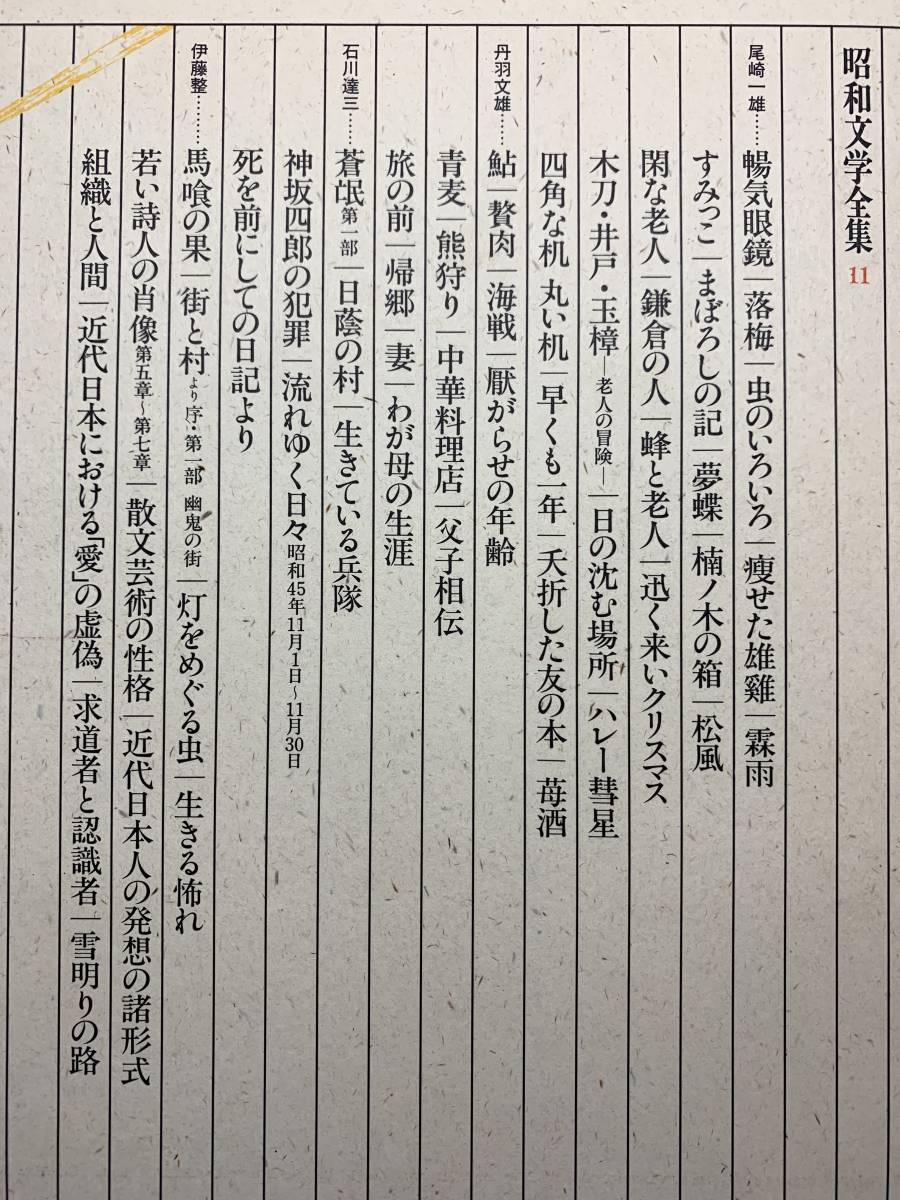 昭和文学全集 11
尾崎一雄……暢気眼鏡｜落梅｜虫のいろいろ｜痩せた雄雞｜霖雨
すみっこ｜まぼろしの記｜夢蝶｜楠ノ木の箱｜松風
閑な老人｜鎌倉の人｜蜂と老人｜迅く来いクリスマス
木刀・井戸・玉樟―老人の冒険―｜日の沈む場所｜ハレー彗星
四角な机 丸い机｜早くも一年｜夭折した友の本｜苺酒
丹羽文雄……鮎｜贅肉｜海戦｜厭がらせの年齢
青麦｜熊狩り｜中華料理店｜父子相伝
旅の前｜帰郷｜妻｜わが母の生涯
石川達三……蒼氓 第一部｜日蔭の村｜生きている兵隊
神坂四郎の犯罪｜流れゆく日々 昭和45年11月1日〜11月30日
死を前にしての日記より
伊藤整………馬喰の果｜街と村 より 序・第一部 幽鬼の街｜灯をめぐる虫｜生きる怖れ
若い詩人の肖像 第五章〜第七章｜散文芸術の性格｜近代日本人の発想の諸形式
組織と人間｜近代日本における「愛」の虚偽｜求道者と認識者｜雪明りの路